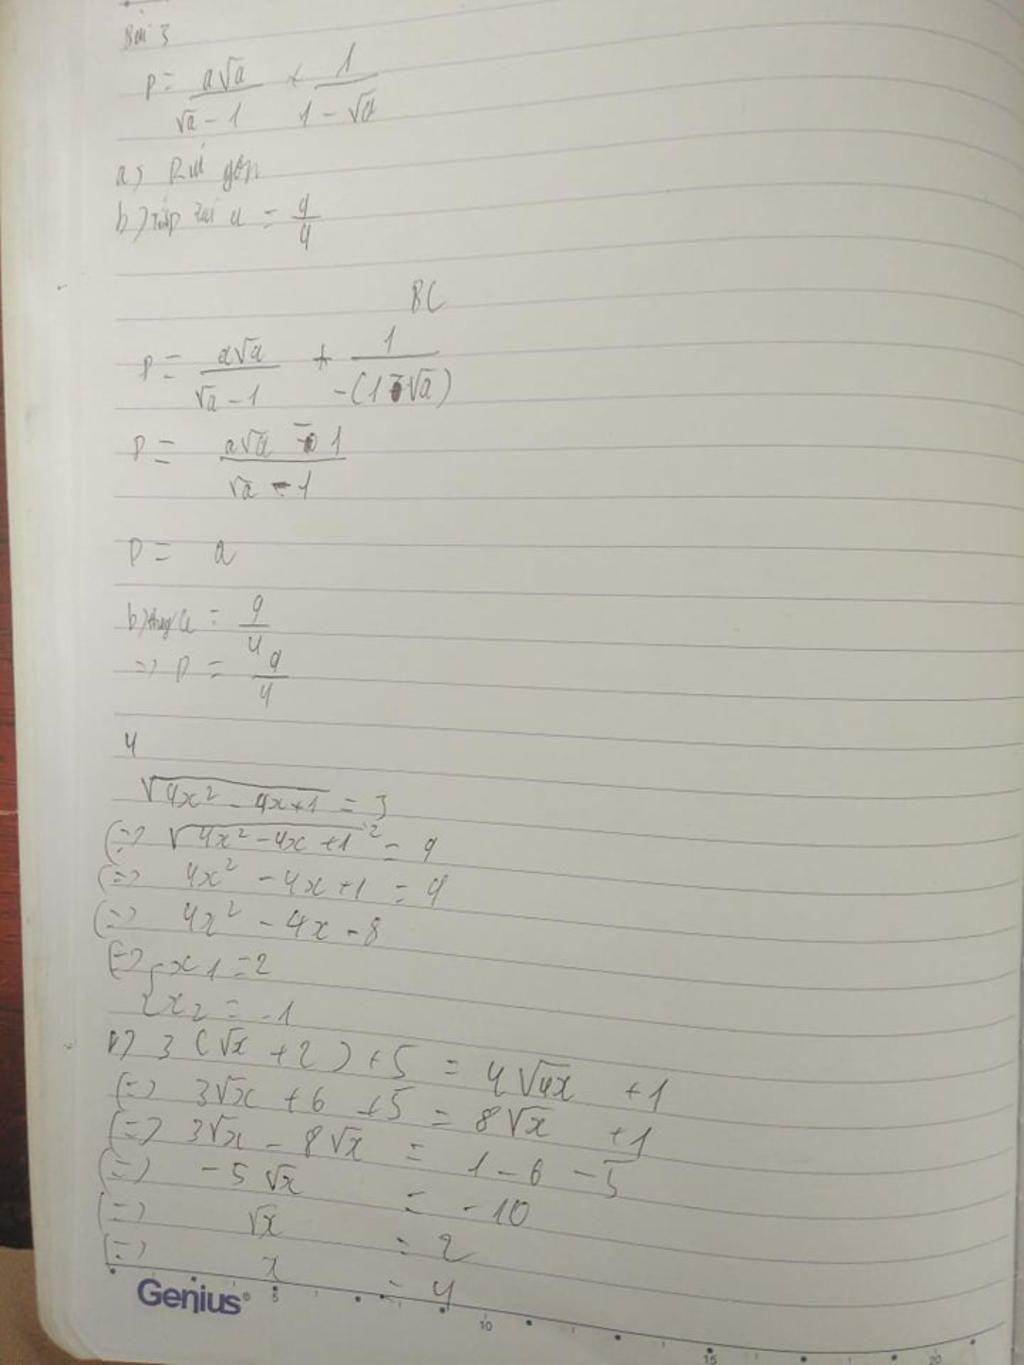 Bài 3
P = a√a / (√a - 1) + 1 / (1 - √a)
a) Rút gọn
b) a = 9/4
BC
P = a√a / (√a - 1) + 1 / -(1-√a)
P = (a√a - 1) / (√a - 1)
P = a
b) thay a = 9/4
=> P = 9/4
4
√(4x² - 4x + 1) = 3
(=) √(4x² - 4x + 1)² = 9
(=) 4x² - 4x + 1 = 9
(=) 4x² - 4x - 8
(=) { x1 = 2
x2 = -1
b) 3(√x + 2) + 5 = 4√4x + 1
(=) 3√x + 6 + 5 = 8√x + 1
(=) 3√x - 8√x = 1 - 6 - 5
(=) -5√x = -10
(=) √x = 2
(=) x = 4
Genius® 5 10 15 20